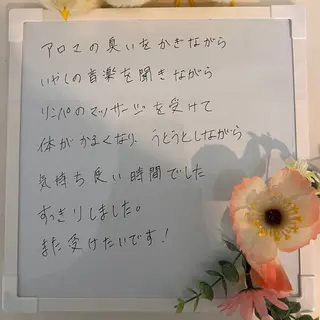 アロマの臭いをかぎながら
いやしの音楽を聞きながら
リンパのマッサージを受けて
体がかるくなり、うとうとしながら
気持ち良い時間でした
すっきりしました。
また受けたいです！